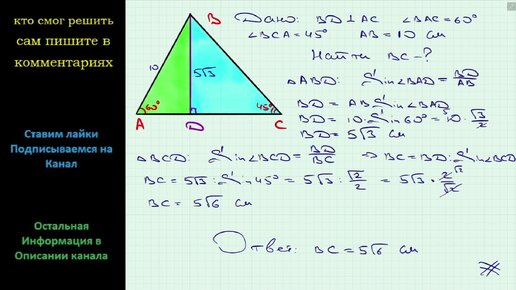 кто смог решить
сам пишите в
комментариях
Ставим лайки
Подписываемся на
Канал
Остальная
Информация в
Описании канала
B
10
5√3
60°
45°
A
D
C
Дано: BD ⊥ AC ∠BAC=60°
∠BCA=45° AB=10 см
Найти BC-?
△ABD: Sin∠BAD=BD/AB
BD=AB·Sin∠BAD
BD=10·Sin60°=10·√3/2
BD=5√3 см
△BCD: Sin∠BCD=BD/BC ⇒ BC=BD:Sin∠BCD
BC=5√3:Sin45°=5√3:√2/2=5√3·2/√2
BC=5√6 см
Ответ: BC=5√6 см